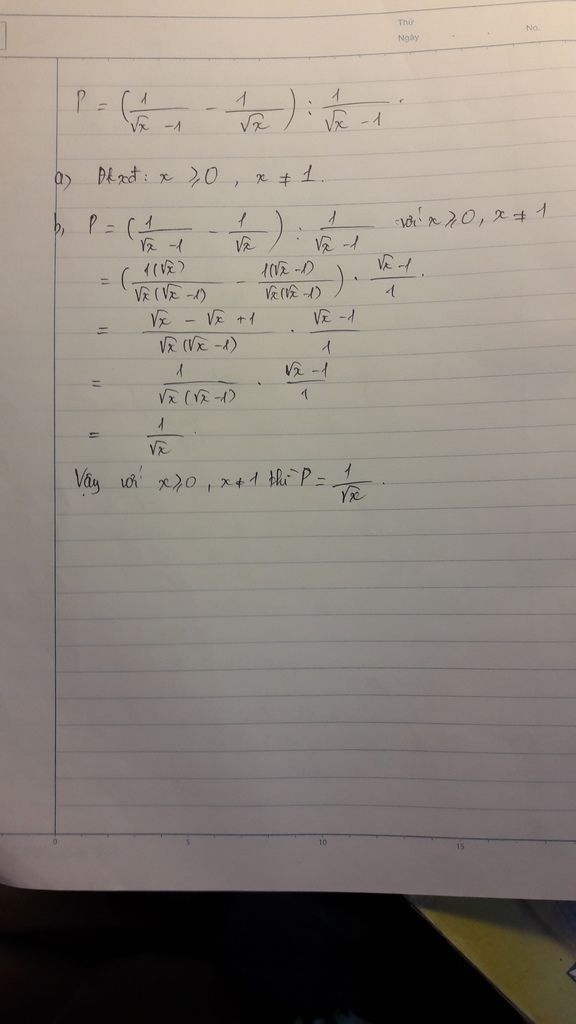 Thứ
Ngày . . No.
P = (1/(√x - 1) - 1/√x) : 1/(√x - 1) .
a) Đkxđ: x ⩾ 0 , x ≠ 1.
b, P = (1/(√x - 1) - 1/√x) : 1/(√x - 1) với x ⩾ 0, x ≠ 1
= (1(√x)/(√x(√x - 1)) - 1(√x - 1)/(√x(√x - 1))) . (√x - 1)/1 .
= (√x - √x + 1)/(√x(√x - 1)) . (√x - 1)/1
= 1/(√x(√x - 1)) . (√x - 1)/1
= 1/√x .
Vậy với x ⩾ 0, x ≠ 1 thì P = 1/√x .
0 5 10 15